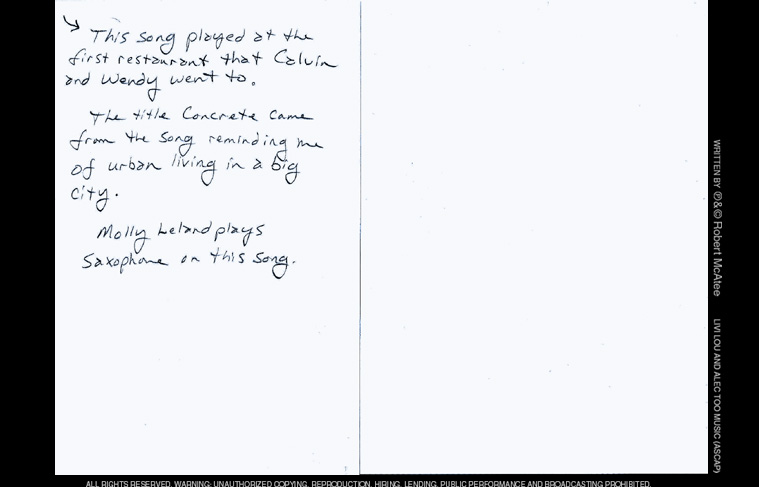 This song played at the
first restaurant that Calvin
and Wendy went to.
The title Concrete came
from the song reminding me
of urban living in a big
city.
Molly Leland plays
Saxophone on this song.
WRITTEN BY ℗&© Robert McAtee
LIVI LOU AND ALEC TOO MUSIC (ASCAP)
ALL RIGHTS RESERVED. WARNING: UNAUTHORIZED COPYING, REPRODUCTION, HIRING, LENDING, PUBLIC PERFORMANCE AND BROADCASTING PROHIBITED.